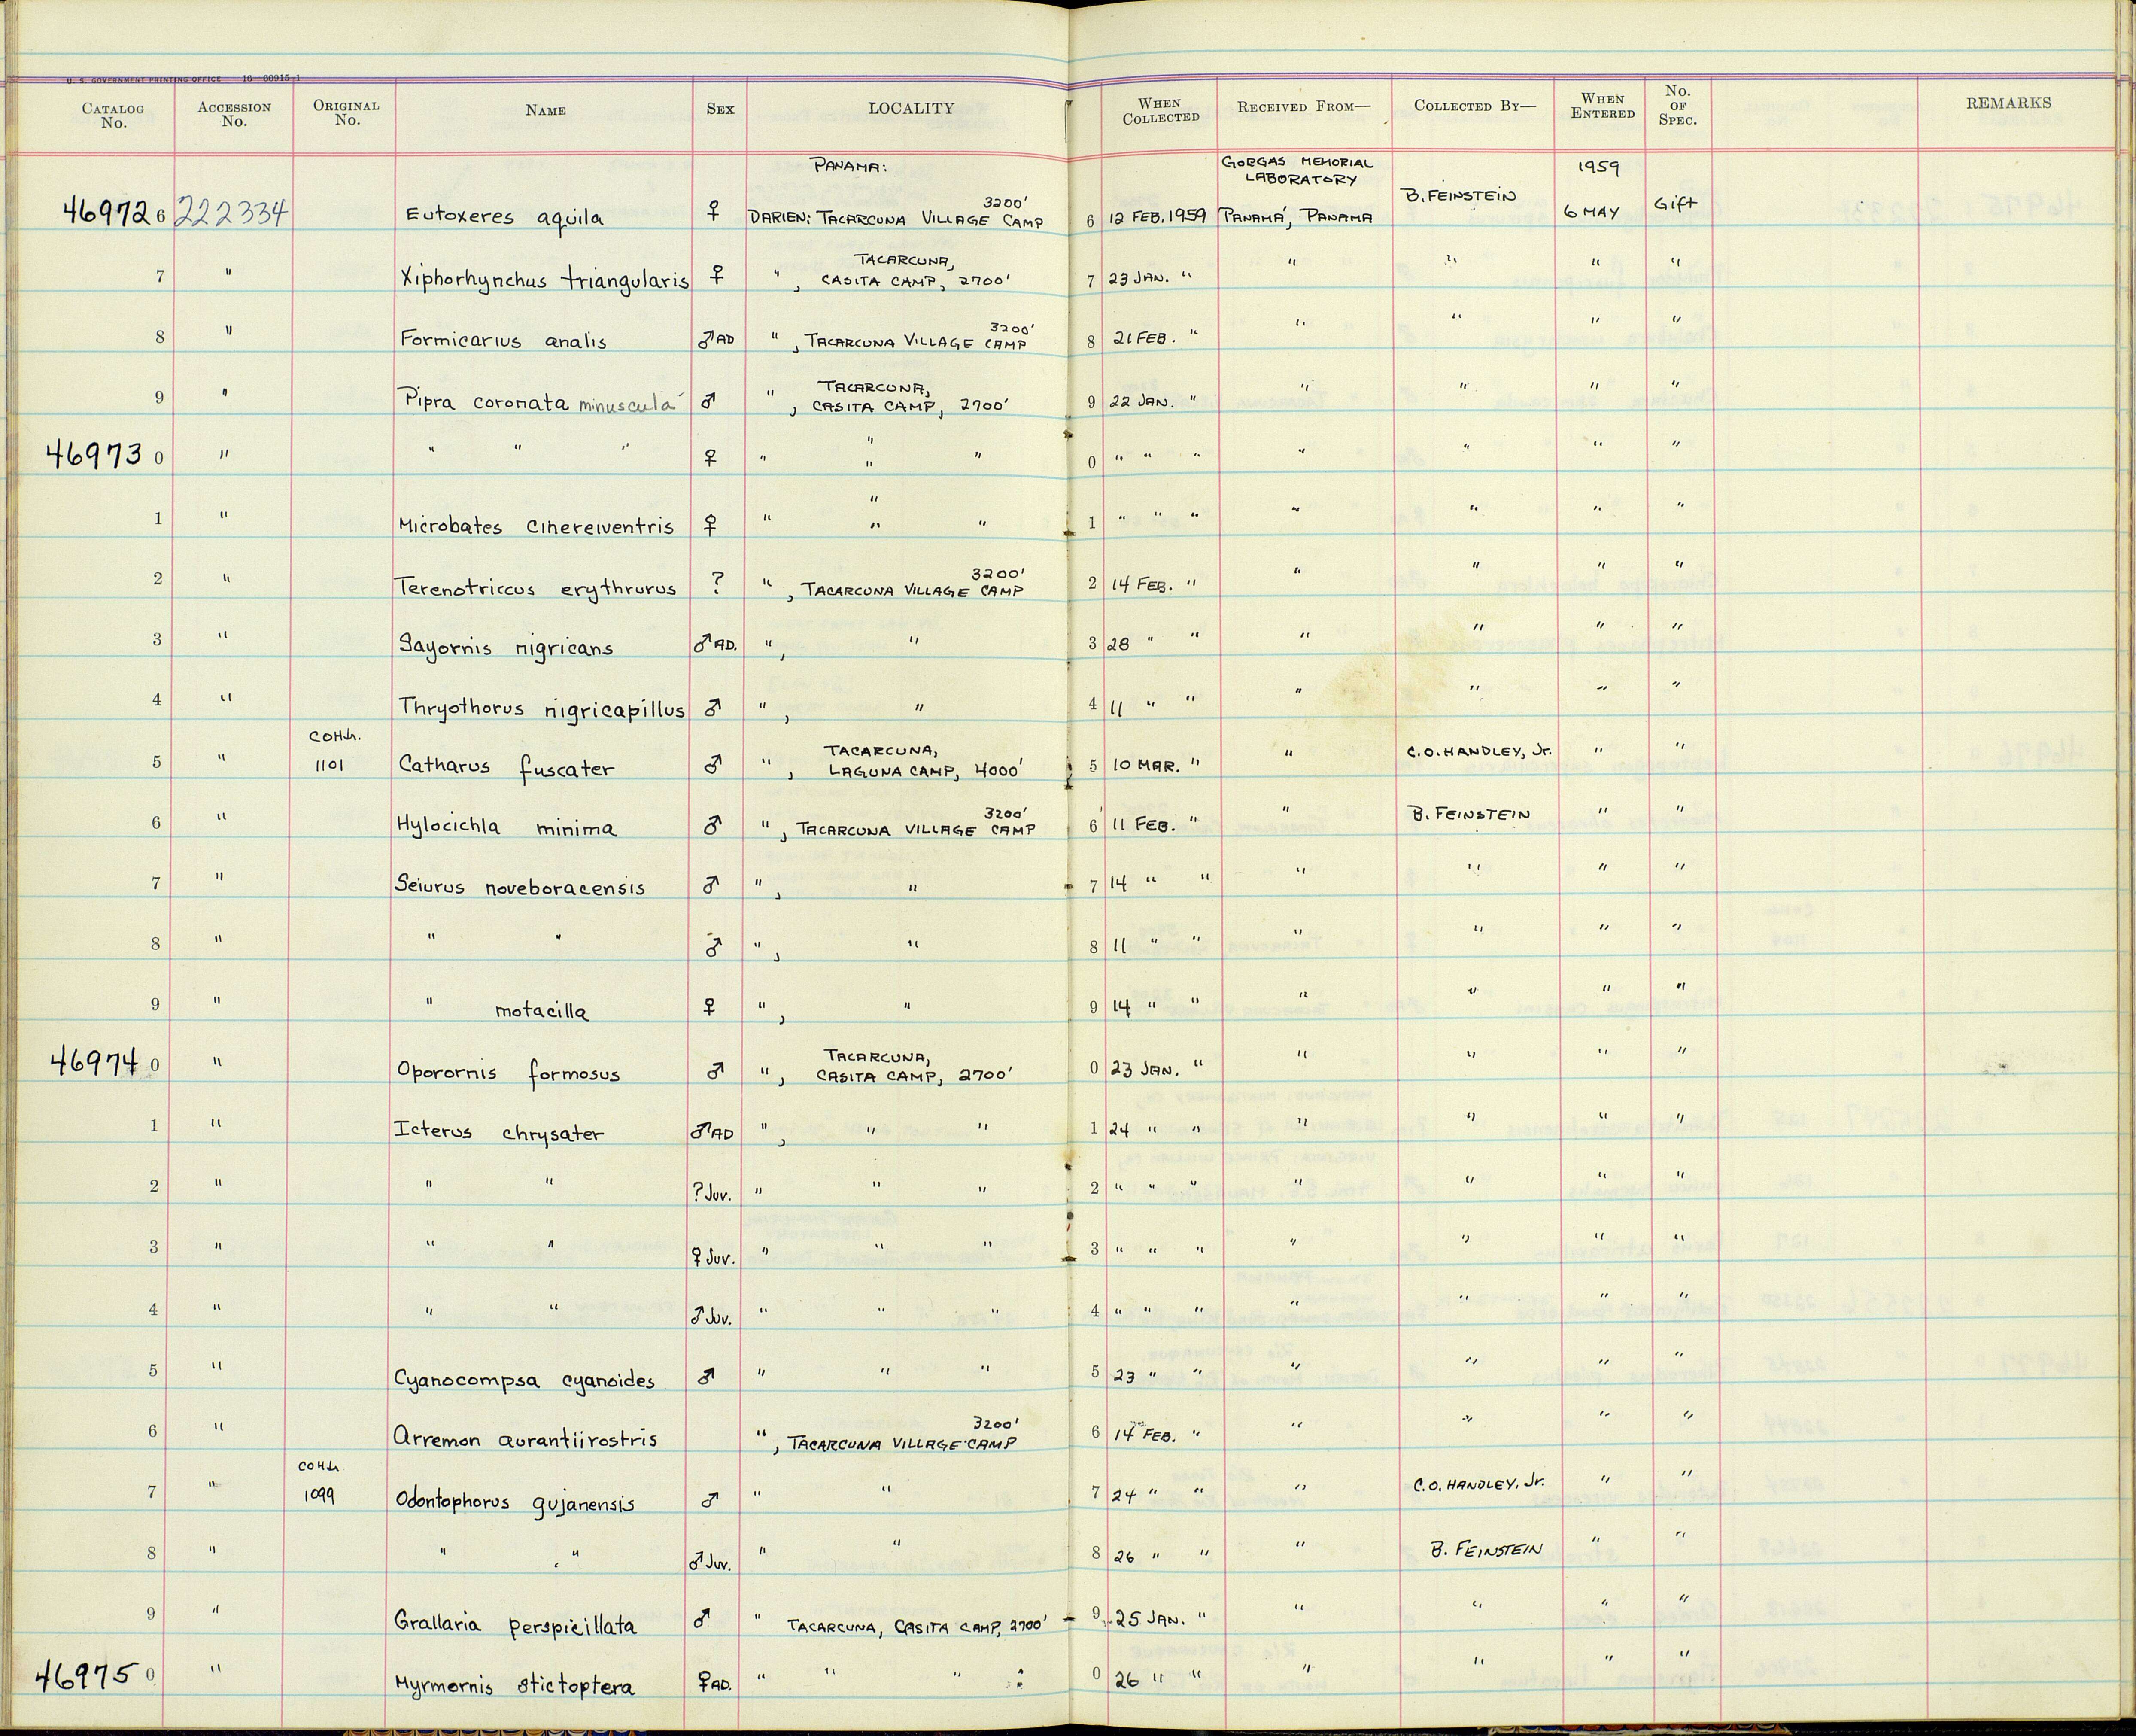 U. S. GOVERNMENT PRINTING OFFICE 16—60915-1
CATALOG No. ACCESSION No. ORIGINAL No. NAME SEX LOCALITY WHEN COLLECTED RECEIVED FROM— COLLECTED BY— WHEN ENTERED No. OF SPEC. REMARKS
PANAMA: GORGAS MEMORIAL LABORATORY 1959
46972 6 222334 Eutoxeres aquila ♀ DARIEN: TACARCUNA VILLAGE CAMP 3200' 6 12 FEB. 1959 PANAMÁ, PANAMA B. FEINSTEIN 6 MAY Gift
7 " Xiphorhynchus triangularis ♀ ", TACARCUNA, CASITA CAMP, 2700' 7 23 JAN. " " " " "
8 " Formicarius analis ♂ AD ", TACARCUNA VILLAGE CAMP 3200' 8 21 FEB. " " " " "
9 " Pipra coronata minuscula ♂ ", TACARCUNA, CASITA CAMP, 2700' 9 22 JAN. " " " " "
46973 0 " " " " ♀ " " " " 0 " " " " " " "
1 " Microbates cinereiventris ♀ " " " " 1 " " " " " " "
2 " Terenotriccus erythrurus ? ", TACARCUNA VILLAGE CAMP 3200' 2 14 FEB. " " " " "
3 " Sayornis nigricans ♂ AD. ", " 3 28 " " " " " "
4 " Thryothorus nigricapillus ♂ ", " 4 11 " " " " " "
5 " COHJr. 1101 Catharus fuscater ♂ ", TACARCUNA, LAGUNA CAMP, 4000' 5 10 MAR. " " C.O. HANDLEY, Jr. " "
6 " Hylocichla minima ♂ ", TACARCUNA VILLAGE CAMP 3200' 6 11 FEB. " " B. FEINSTEIN " "
7 " Seiurus noveboracensis ♂ ", " 7 14 " " " " " "
8 " " " ♂ ", " 8 11 " " " " " "
9 " " motacilla ♀ ", " 9 14 " " " " " "
46974 0 " Oporornis formosus ♂ ", TACARCUNA, CASITA CAMP, 2700' 0 23 JAN. " " " " "
1 " Icterus chrysater ♂ AD ", " " 1 24 " " " " " "
2 " " " ? Juv. " " " 2 " " " " " " "
3 " " " ♀ Juv. " " " 3 " " " " " " "
4 " " " ♂ Juv. " " " 4 " " " " " " "
5 " Cyanocompsa cyanoides ♂ " " " 5 23 " " " " " "
6 " Arremon aurantiirostris ", TACARCUNA VILLAGE CAMP 3200' 6 14 FEB. " " " " "
7 " COHJr 1099 Odontophorus gujanensis ♂ " " 7 24 " " " C.O. HANDLEY, Jr. " "
8 " " " ♂ Juv. " " 8 26 " " " B. FEINSTEIN " "
9 " Grallaria perspicillata ♂ " TACARCUNA, CASITA CAMP, 2700' 9 25 JAN. " " " " "
46975 0 " Myrmornis stictoptera ♀ AD. " " " " 0 26 " " " " " "